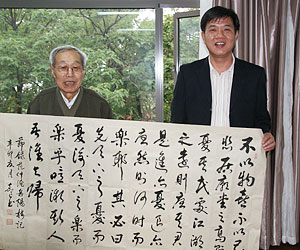 不以物喜不以己
悲居廟堂之高則
憂其民處江湖
之遠則憂其君
是進亦憂退亦憂
然則何時而
樂耶其必曰
先天下之憂而
憂後天下之樂而
樂乎噫微斯人
吾誰與歸
節錄范仲淹岳陽樓記
辛卯 月